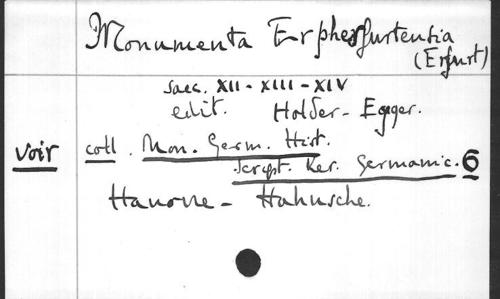 Monumenta Erphesfurtensia
(Erfurt)
saec. XII - XIII - XIV
edit. Holder-Egger.
voir coll. Mon. Germ. Hist.
Script. Rer. Germanic. 6
Hanovre - Hahnsche.